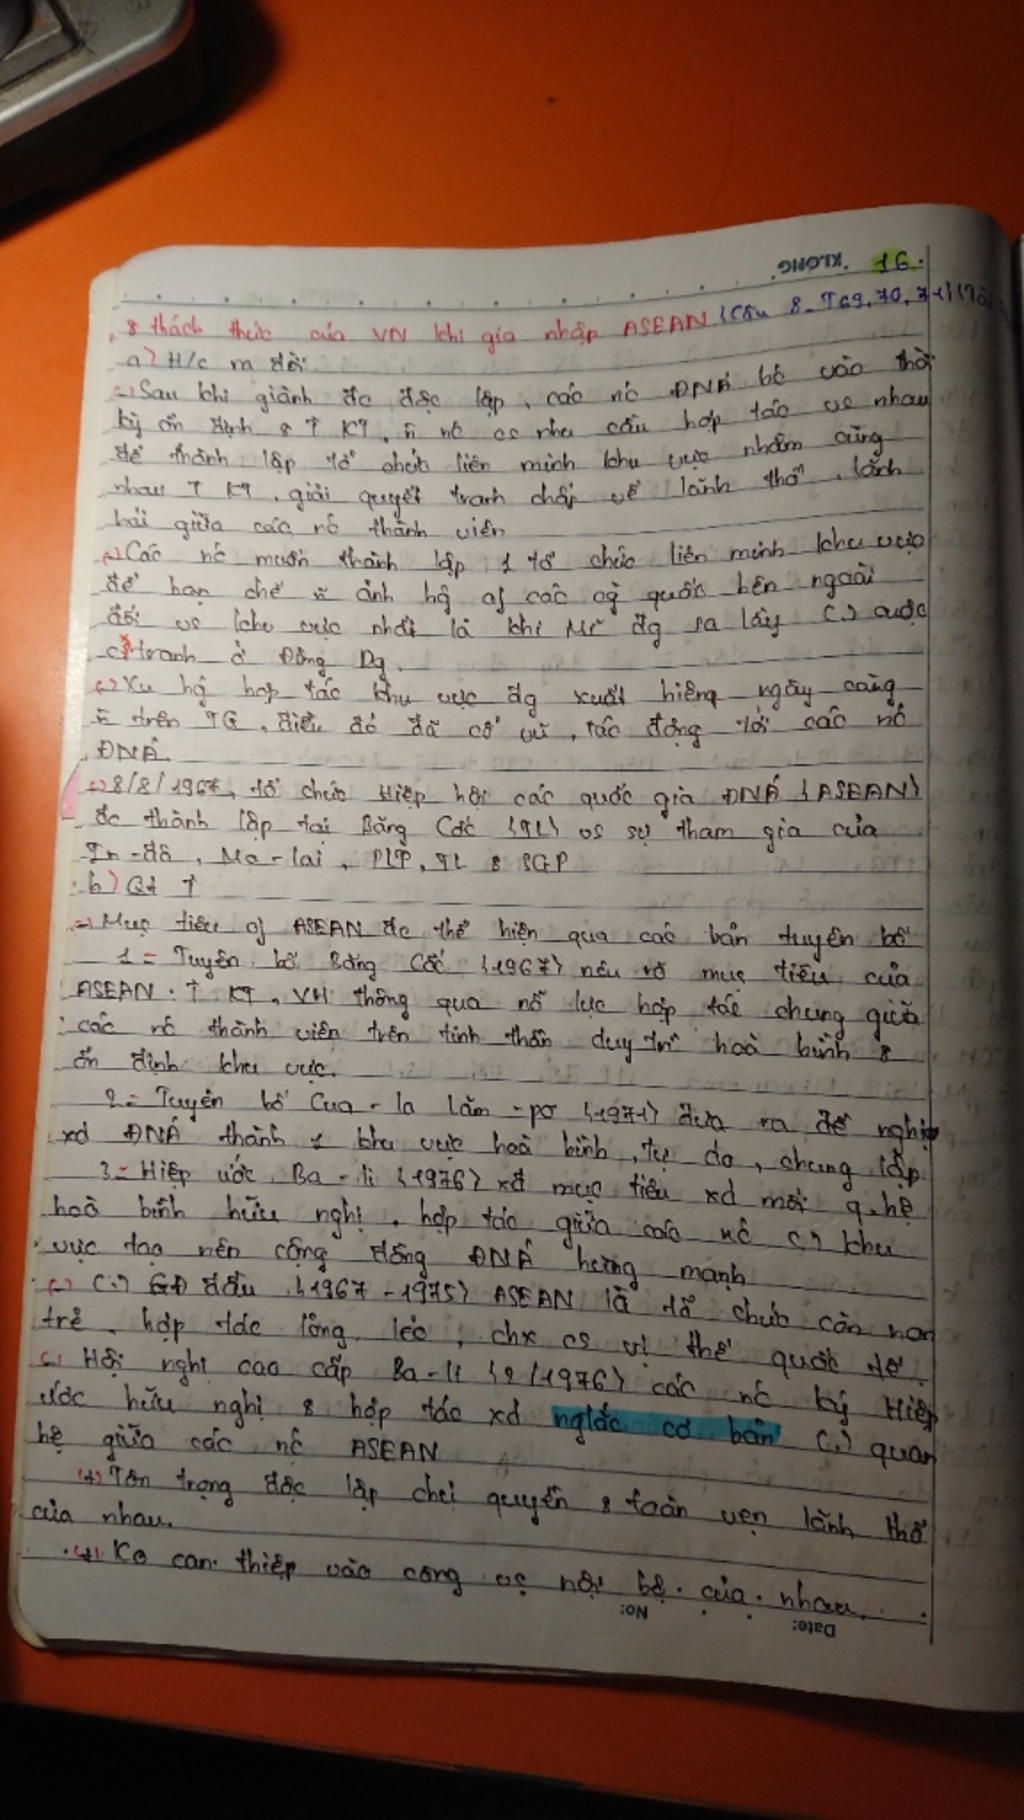 KLONG. 16.
& thách thức của VN khi gia nhập ASEAN (Câu 8_T69,70,71)
a) H/c ra đời
Sau khi giành đc độc lập, các nc ĐNÁ bc vào thời
kỳ ổn định & ↑ KT, n̄ nc cs nhu cầu hợp tác vs nhau
để thành lập tổ chức liên minh khu vực nhằm cùng
nhau ↑ KT, giải quyết tranh chấp về lãnh thổ, lãnh
hải giữa các nc thành viên
(-) Các nc muốn thành lập 1 tổ chức liên minh khu vực
để hạn chế n̄ ảnh hg of các cg quốc bên ngoài
đối vs khu vực nhất là khi Mĩ đg sa lầy (.) cuộc
c² tranh ở Đông Dg.
(-) Xu hg hợp tác khu vực đg xuất hiêng ngày càng
n̄ trên TG, điều đó đã cổ vũ, tác động tới các nc
ĐNÁ.
(-) 8/8/1967, tổ chức Hiệp hội các quốc gia ĐNÁ (ASEAN)
đc thành lập tại Băng Cốc (TL) vs sự tham gia của
In-đô, Ma-lai, PLP, TL & SGP
b) Qt ↑
Mục tiêu of ASEAN đc thể hiện qua các bản tuyên bố
1= Tuyên bố Băng Cốc (1967) nêu rõ mục tiêu của
ASEAN. ↑ KT, VH thông qua nỗ lực hợp tác chung giữa
các nc thành viên trên tinh thần duy trì hoà bình &
ổn định khu vực.
2= Tuyên bố Cua-la lăm-pơ (1971) đưa ra đề nghị
xd ĐNÁ thành 1 khu vực hoà bình, tự do, chung lập
3= Hiệp ước Ba-li (1976) xđ mục tiêu xd mối q.hệ
hoà bình hữu nghị, hợp tác giữa các nc (.) khu
vực tạo nên cộng đồng ĐNÁ hùng mạnh
(-) (.) GĐ đầu (1967-1975) ASEAN là tổ chức còn non
trẻ, hợp tác lỏng lẻo, chx cs vị thế quốc tế.
(-) Hội nghị cao cấp Ba-li (2/1976) các nc ký Hiệp
ước hữu nghị & hợp tác xđ ngtắc cơ bản (.) quan
hệ giữa các nc ASEAN
(+) Tôn trọng độc lập chủ quyền & toàn vẹn lãnh thổ
của nhau.
(+) Ko can thiệp vào công vc nội bộ của nhau.
No:
Date: